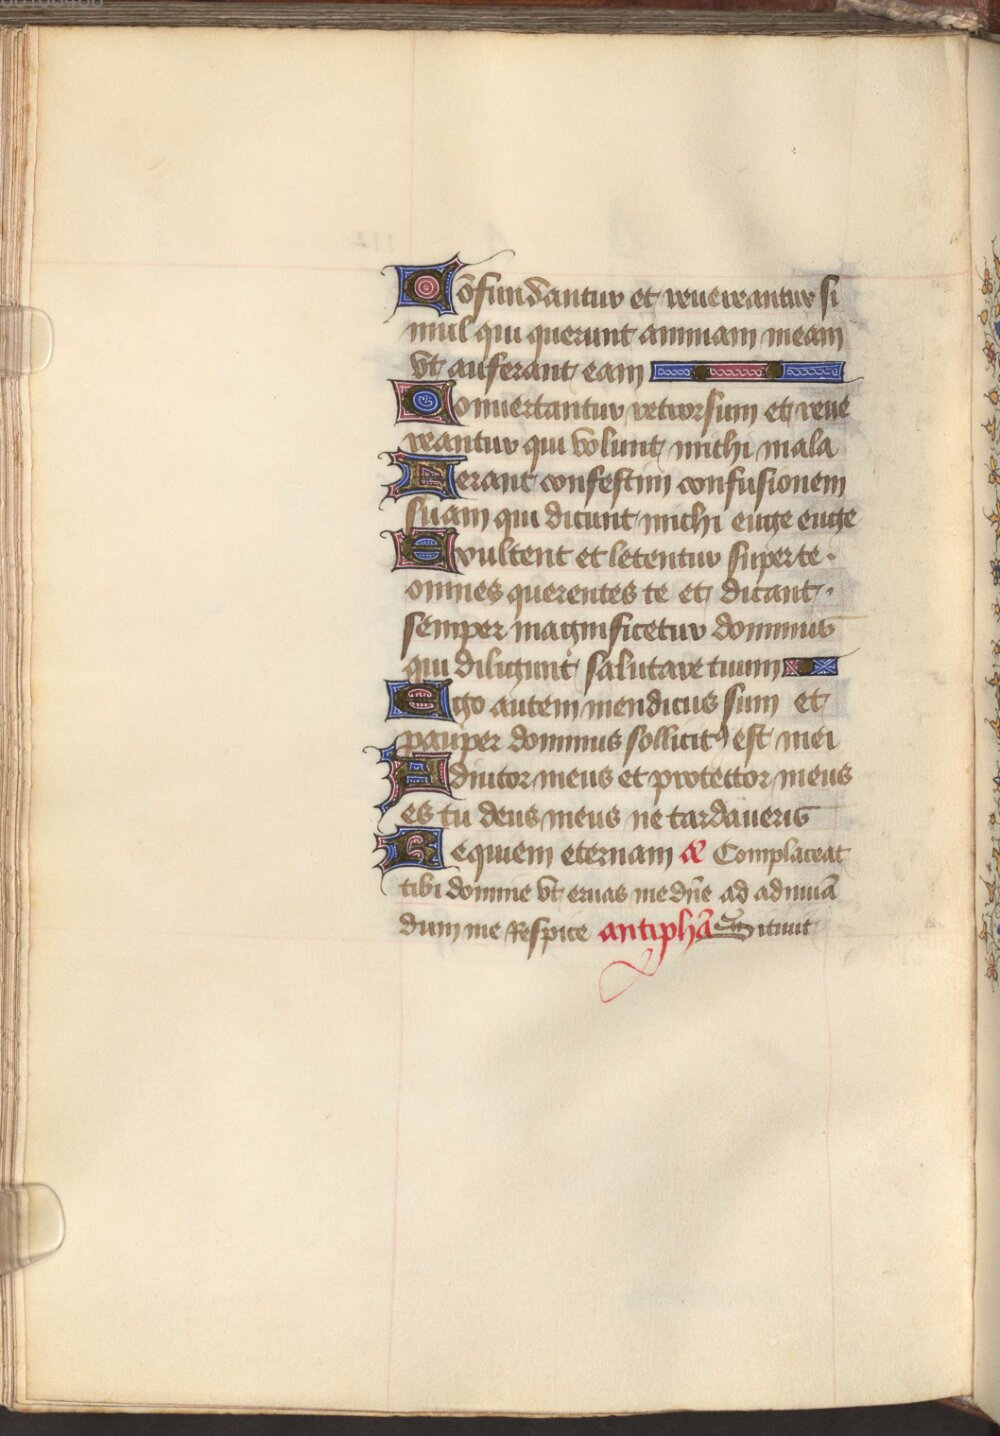 Cōfundantur et reuereantur si
mul qui querunt animam meam
vt auferant eam
Conuertantur retrorsum et reue
reantur qui volunt michi mala
Ferant confestim confusionem
suam qui dicunt michi euge euge
Exultent et letentur super te.
omnes querentes te et dicant.
semper magnificetur dominus
qui diligunt salutare tuum
Ego autem mendicus sum et
pauper dominus sollicitꝰ est mei
Adiutor meus et protector meus
es tu deus meus ne tardaueris
Requiem eternam &c Complaceat
tibi domine vt eruas me dn̄e ad adiuuā
dum me Respice antiphā Sitiuit